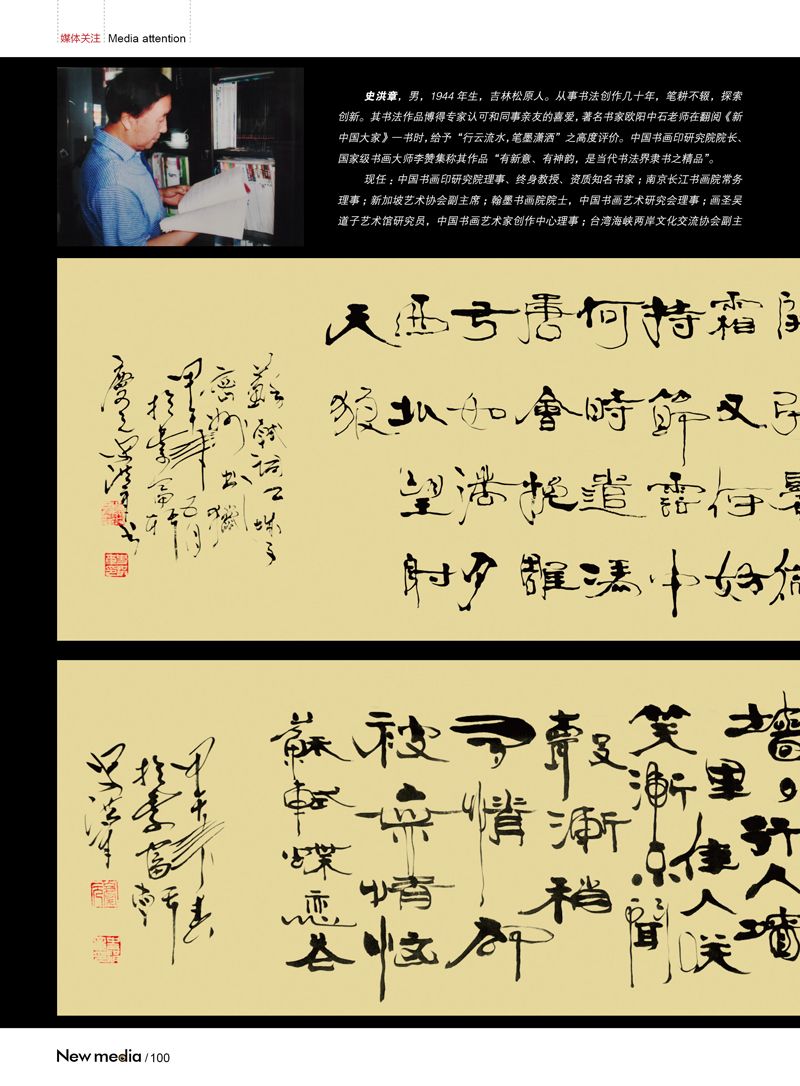 媒体关注 Media attention
史洪章，男，1944 年生，吉林松原人。从事书法创作几十年，笔耕不辍，探索
创新。其书法作品博得专家认可和同事亲友的喜爱，著名书家欧阳中石老师在翻阅《新
中国大家》一书时，给予“行云流水，笔墨潇洒”之高度评价。中国书画印研究院院长、
国家级书画大师李赞集称其作品“有新意、有神韵，是当代书法界隶书之精品”。
现任：中国书画印研究院理事、终身教授、资质知名书家；南京长江书画院常务
理事；新加坡艺术协会副主席；翰墨书画院院士，中国书画艺术研究会理事；画圣吴
道子艺术馆研究员，中国书画艺术家创作中心理事；台湾海峡两岸文化交流协会副主
霜又何妨
持節雲中
何時遣馮
唐會挽雕
弓如滿月
西北望射
天狼
蘇軾詞江城子
密州出獵
甲午年五月
史洪章书
墻外行人墻
里佳人咲
笑漸不聞
聲漸稍
多情卻
被無情惱
蘇軾蝶戀花
甲午年春
史洪章
New media / 100